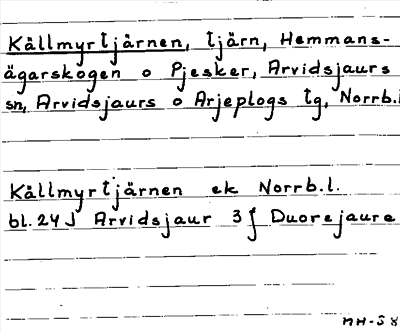 Källmyrtjärnen, tjärn, Hemmans-
ägarskogen o Pjesker, Arvidsjaurs
sn, Arvidsjaurs o Arjeplogs tg, Norrb.
Källmyrtjärnen ek Norrb.l.
bl. 24J Arvidsjaur 3f Duorejaure